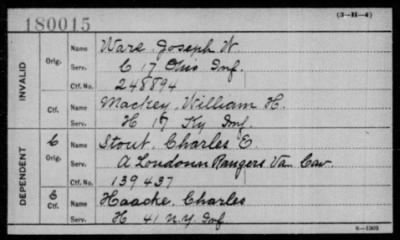 180015
(3—H—4)
INVALID
Orig.
Name Ware, Joseph W.
Serv. C 17 Ohio Inf.
Ctf. No. 248894
Ctf.
Name Mackey, William H.
Serv. H 17 Ky Inf.
DEPENDENT
C
Orig.
Name Stout, Charles E.
Serv. A Loudoun Rangers Va. Cav.
Ctf. No. 139437
C
Ctf.
Name Haacke, Charles
Serv. H 41 N.Y. Inf